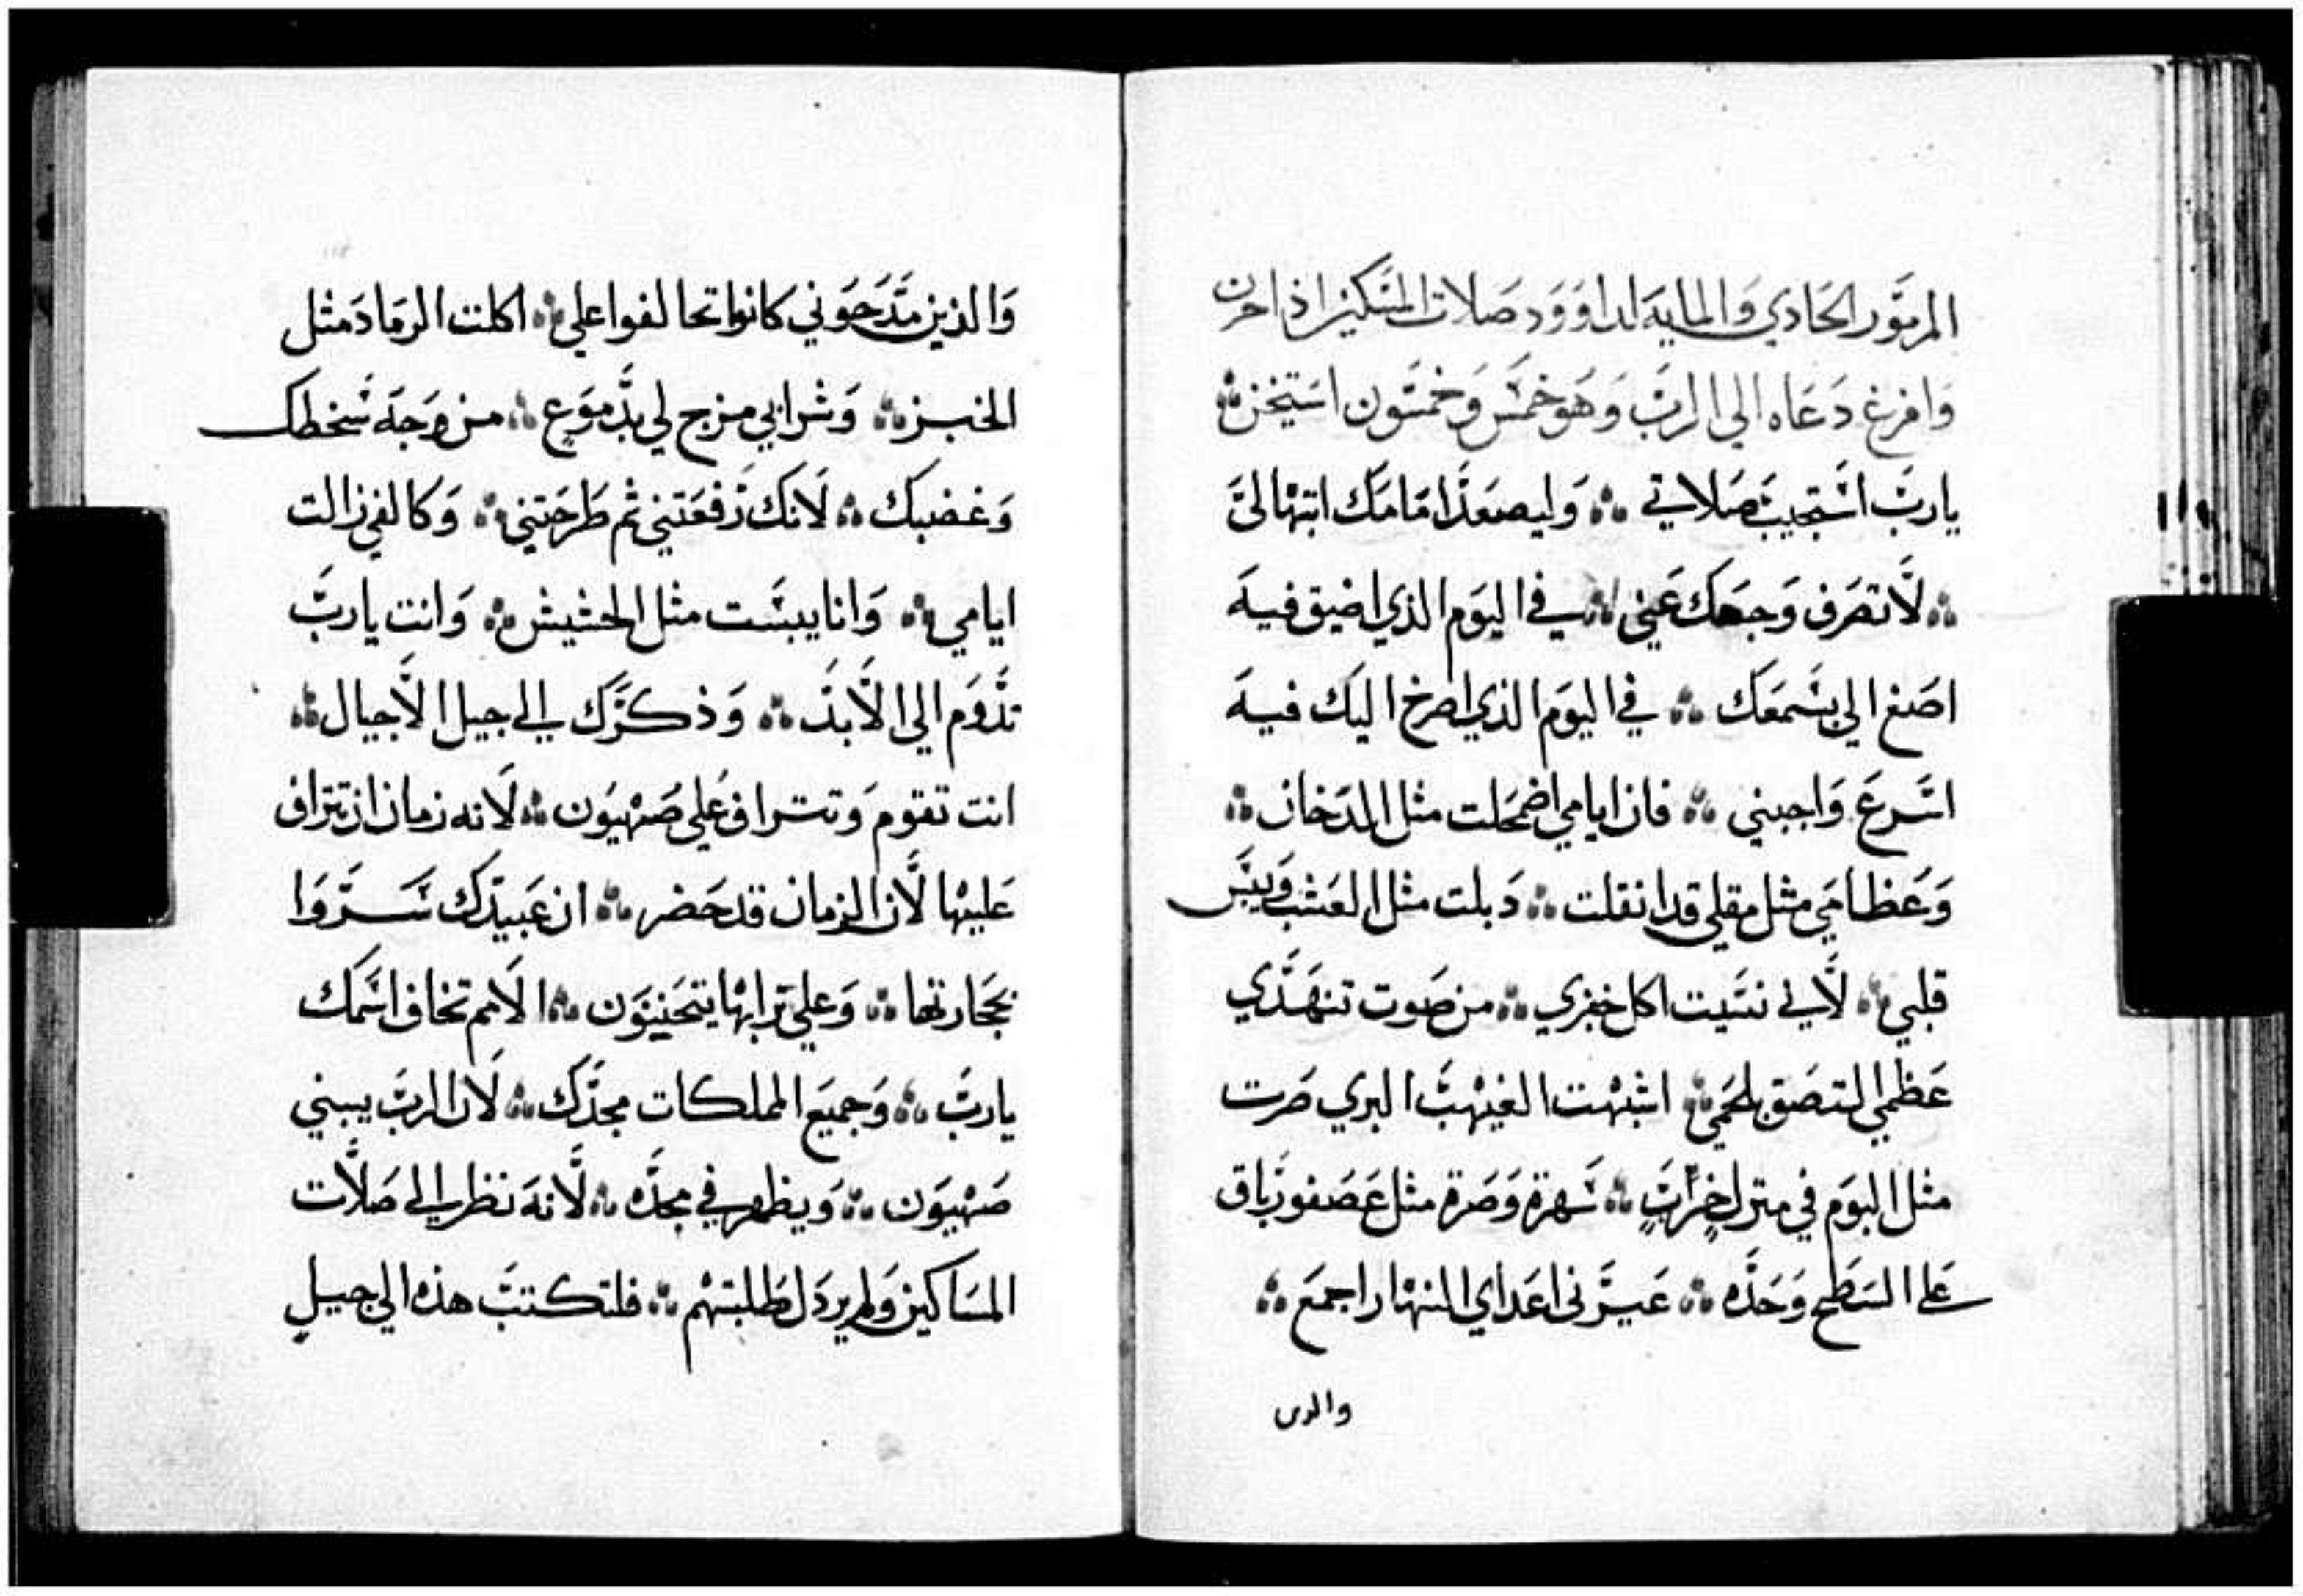 المزمور الحادي والمايه لداوود صلات المسكين اذا حزن
وافرغ دعاه الي الرب وهو خمس وخمسون استيخن ❖
يارب استجيب صلاتي ❖ وليصعد امامك ابتهالي
❖ لا تصرف وجهك عني ❖ في اليوم الذي اضيق فيه
اصغ الي بسمعك ❖ في اليوم الذي اصرخ اليك فيه
اسرع واجبني ❖ فان ايامي اضمحلت مثل الدخان ❖
وعظامي مثل مقلي قد انقلت ❖ دبلت مثل العشب ويبس
قلبي ❖ لاني نسيت اكل خبزي ❖ من صوت تنهدي
عظمي التصق بلحمي ❖ اشبهت الغيهب البري صرت
مثل البوم في منزل خرابٍ ❖ سهرة وصرة مثل عصفور باق
علي السطح وحده ❖ عيرني اعداي النهار اجمع ❖
والدين
والذين مدحوني كانوا تحالفوا علي ❖ اكلت الرماد مثل
الخبز ❖ وشرابي مزج لي بدموع ❖ من وجه سخطك
وغضبك ❖ لانك رفعتني ثم طرحتني ❖ وكالفي زالت
ايامي ❖ وانا يبست مثل الحشيش ❖ وانت يارب
تدوم الي الابد ❖ وذكرك الي جيل الاجيال ❖
انت تقوم وتتراف علي صهيون ❖ لانه زمان ان تتراف
عليها لان الزمان قد حضر ❖ ان عبيدك سروا
بحجارتها ❖ وعلي ترابها يتحننون ❖ الامم تخاف اسمك
يارب ❖ وجميع المملكات مجدك ❖ لان الرب يبني
صهيون ❖ ويظهر في مجده ❖ لانه نظر الي صلات
المساكين ولم يردل طلبتهم ❖ فلتكتب هذه الي جيل